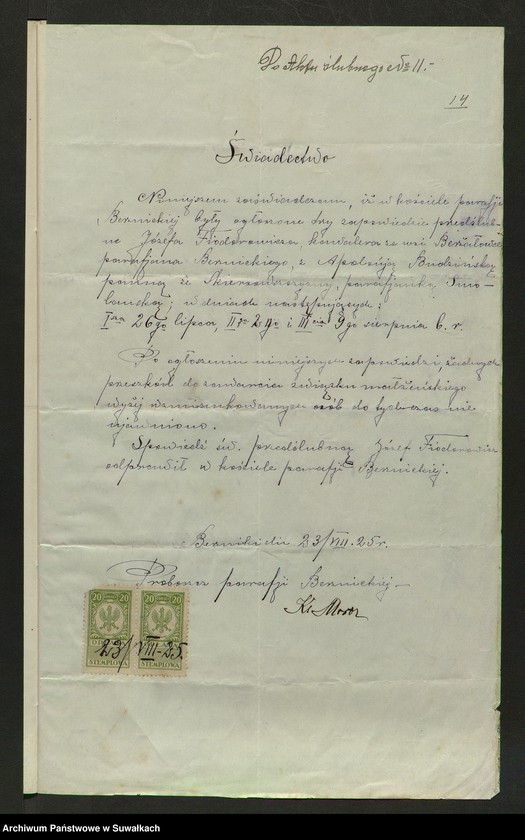 Do Aktu ślubnego No 11.-
14
Świadectwo
Niniejszem zaświadczam, iż w kościele parafji
Bernickiej były ogłoszone trzy zapowiedzie przedślub-
ne Józefa Fiodorowicza, kawalera ze wsi
parafjanina Bernickiego, z Apolonją Budzińską
panną ze parafjanką Smo-
lańską; w dniach następujących:
I-sza 26go lipca, II-ga 2go i III-cia 9go sierpnia b. r.
Po ogłoszeniu niniejszych zapowiedzi, żadnych
przeszkód do zawarcia związku małżeńskiego
wyżej wzmiankowanych osób do tych czas nie
ujawniono.
Spowiedź św. przedślubną Józef Fiodorowicz
odprawił w kościele parafji Bernickiej.
Berniki dn. 23/VIII-25 r.
Proboszcz parafji Bernickiej-
Ks.
20 20 20 20
23/VIII-25.
STEMPLOWA STEMPLOWA
Archiwum Państwowe w Suwałkach